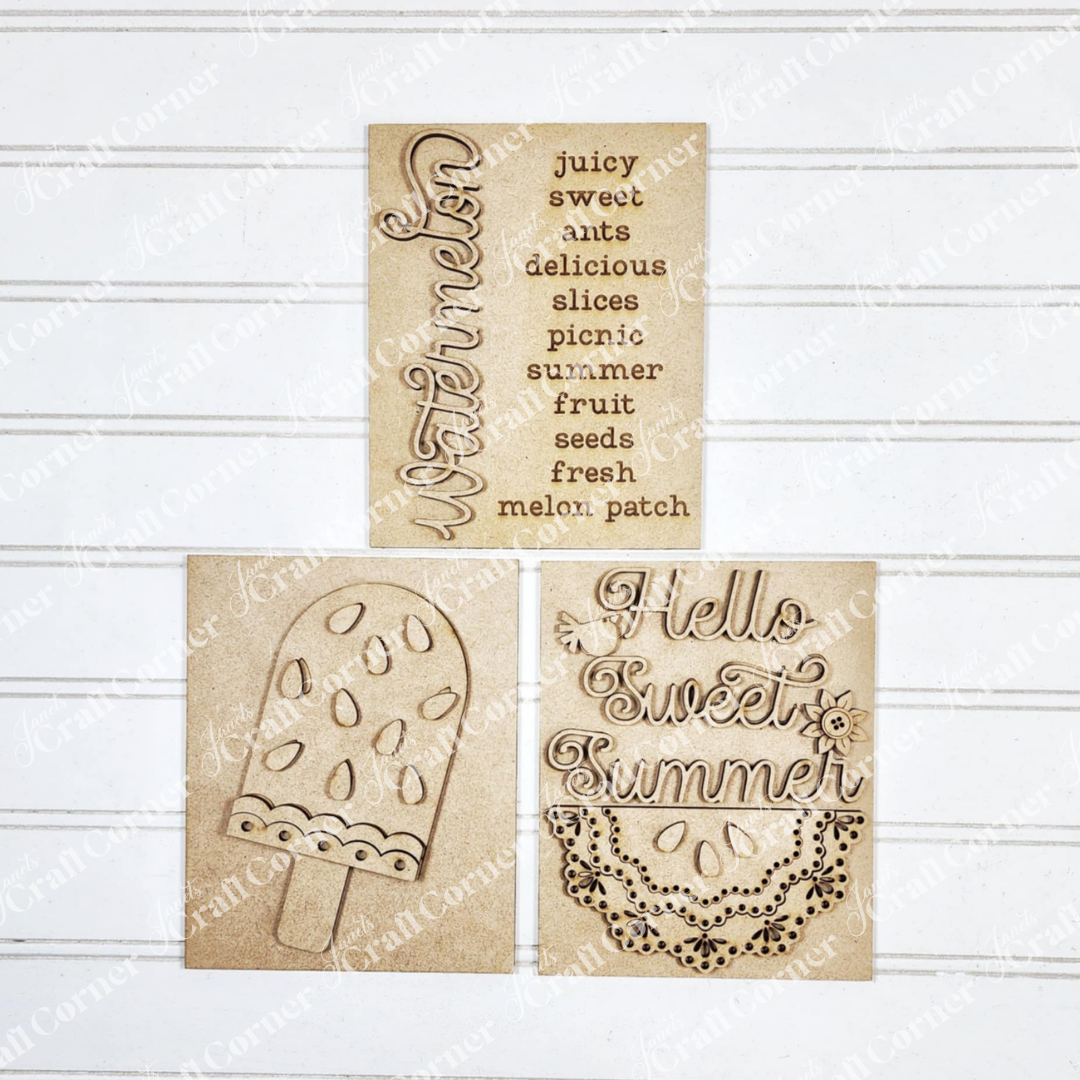 Watermelon
juicy
sweet
ants
delicious
slices
picnic
summer
fruit
seeds
fresh
melon patch
Hello
Sweet
Summer
Janet's
Craft Corner